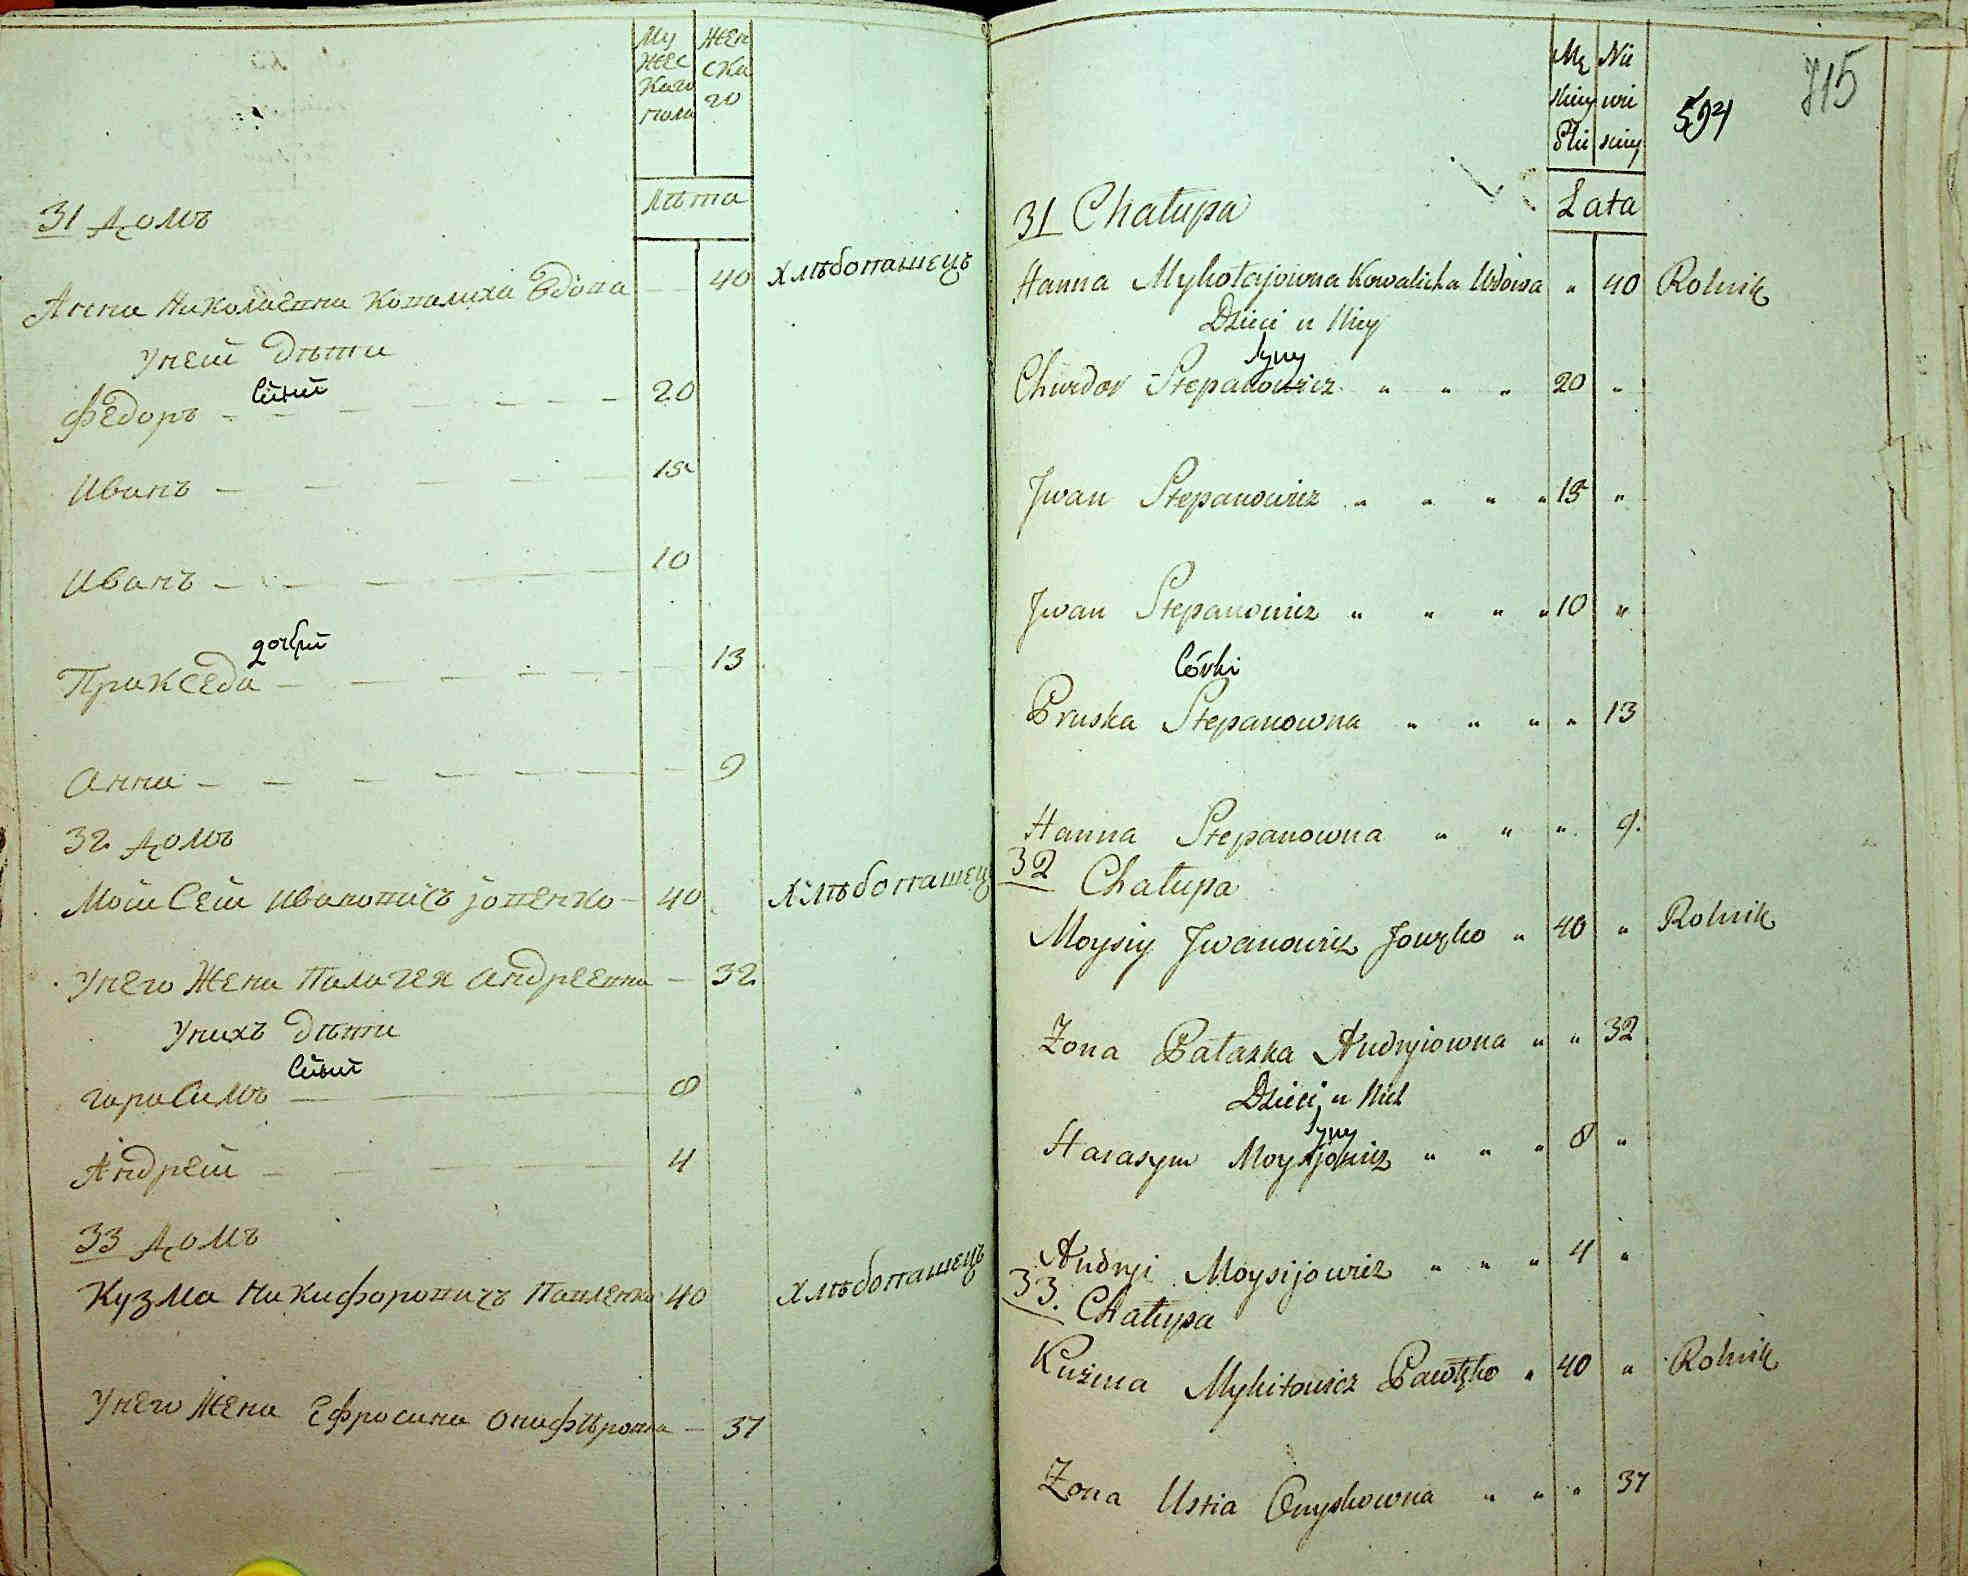 Му
жес
каго
пола
Жен
ска
го
Лѣта
31 Домъ
Анна Николаевна Ковалиха Вдова — 40 Хлѣбопашецъ
Уней Дѣти
Сыны
Федоръ — 20
Иванъ — 15
Иванъ — 10
дочери
Пракседа — 13
Анна — 9
32 Домъ
Мойсей Ивановичъ Іовенко — 40 Хлѣбопашец
Унего Жена Палагея Андреевна — 32
Унихъ Дѣти
Сыны
Гарасимъ — 8
Андрей — 4
33 Домъ
Кузма Никифоровичъ Павленко 40 Хлѣбопашецъ
Унего Жена Ефросина Онифѣровна — 37
Mę
skiey
Płci
Nie
wie
skiey
Lata
594
715
31 Chałupa
Hanna Mykołajowna Kowalicha Wdowa " 40 Rolnik
Dzieci u Niey
Syny
Chwedor Stepanowicz " " " 20 "
Jwan Stepanowicz " " " " 15 "
Jwan Stepanowicz " " " " 10 "
Córki
Pruska Stepanowna " " " " 13
Hanna Stepanowna " " " 9.
32 Chałupa
Moysiy Jwanowicz Jowzko " 40 " Rolnik
Zona Pałazka Andryiowna " " 32
Dzieci u Nich
Syny
Harasym Moysijowicz " " " 8 "
Andryi Moysijowicz " " " 4 "
33. Chałupa
Kuzma Mykitowicz Pawłzko " 40 " Rolnik
Zona Ustia Onyskowna " " " 37